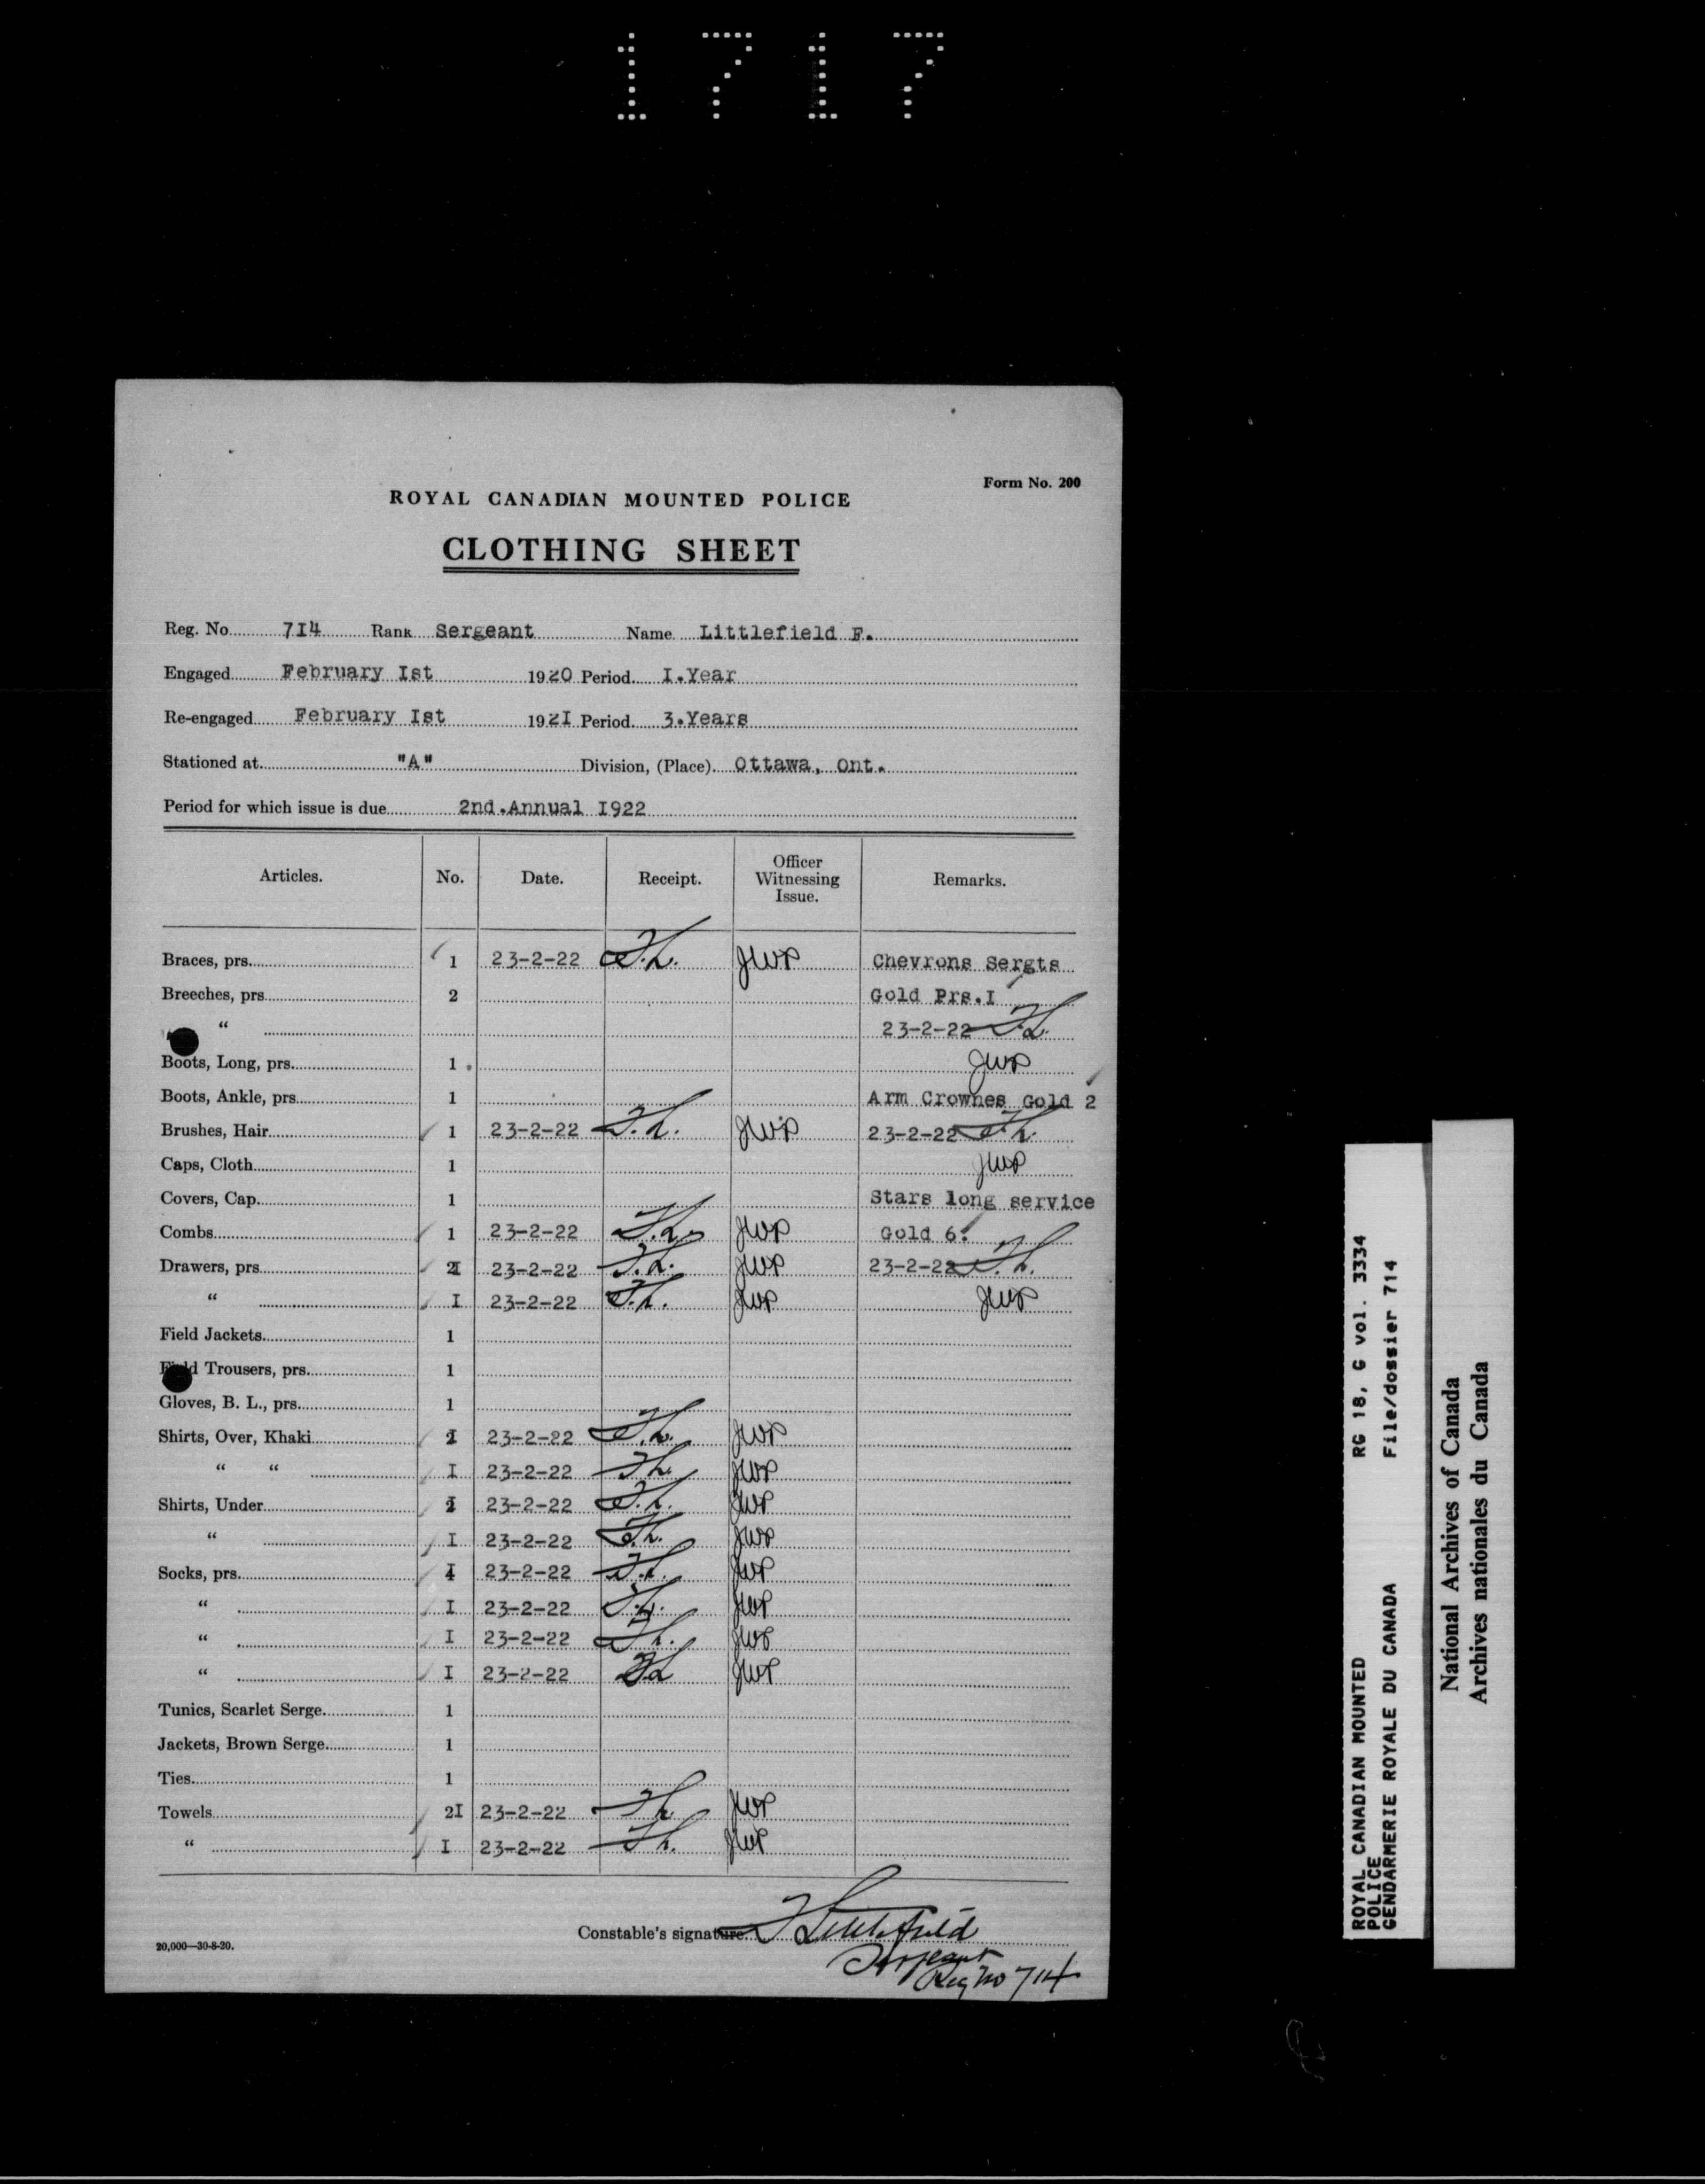 1717
Form No. 200
ROYAL CANADIAN MOUNTED POLICE
CLOTHING SHEET
Reg. No. 7I4 Rank Sergeant Name Littlefield F.
Engaged February Ist 1920 Period I.Year
Re-engaged February Ist 192I Period 3.Years
Stationed at "A" Division, (Place) Ottawa, Ont.
Period for which issue is due 2nd.Annual I922
Articles. No. Date. Receipt. Officer Witnessing Issue. Remarks.
Braces, prs. 1 23-2-22 F.L. JWP Chevrons Sergts
Breeches, prs. 2 Gold Prs.I
" 23-2-22 F.L.
Boots, Long, prs. 1 JWP
Boots, Ankle, prs. 1 Arm Crownes Gold 2
Brushes, Hair 1 23-2-22 F.L. JWP 23-2-22 F.L.
Caps, Cloth 1 JWP
Covers, Cap 1 Stars long service
Combs 1 23-2-22 F.L. JWP Gold 6.
Drawers, prs. 2I 23-2-22 F.L. JWP 23-2-22 F.L.
" I 23-2-22 F.L. JWP JWP
Field Jackets 1
Field Trousers, prs. 1
Gloves, B. L., prs. 1
Shirts, Over, Khaki 2I 23-2-22 F.L. JWP
" " I 23-2-22 F.L. JWP
Shirts, Under 2I 23-2-22 F.L. JWP
" I 23-2-22 F.L. JWP
Socks, prs. 4I 23-2-22 F.L. JWP
" I 23-2-22 F.L. JWP
" I 23-2-22 F.L. JWP
" I 23-2-22 F.L. JWP
Tunics, Scarlet Serge 1
Jackets, Brown Serge 1
Ties 1
Towels 2I 23-2-22 F.L. JWP
" I 23-2-22 F.L. JWP
Constable's signature. F Littlefield
Sergeant
Reg No 714
20,000—30-8-20.
ROYAL CANADIAN MOUNTED RG 18, G vol. 3334
POLICE
GENDARMERIE ROYALE DU CANADA File/dossier 714
National Archives of Canada
Archives nationales du Canada